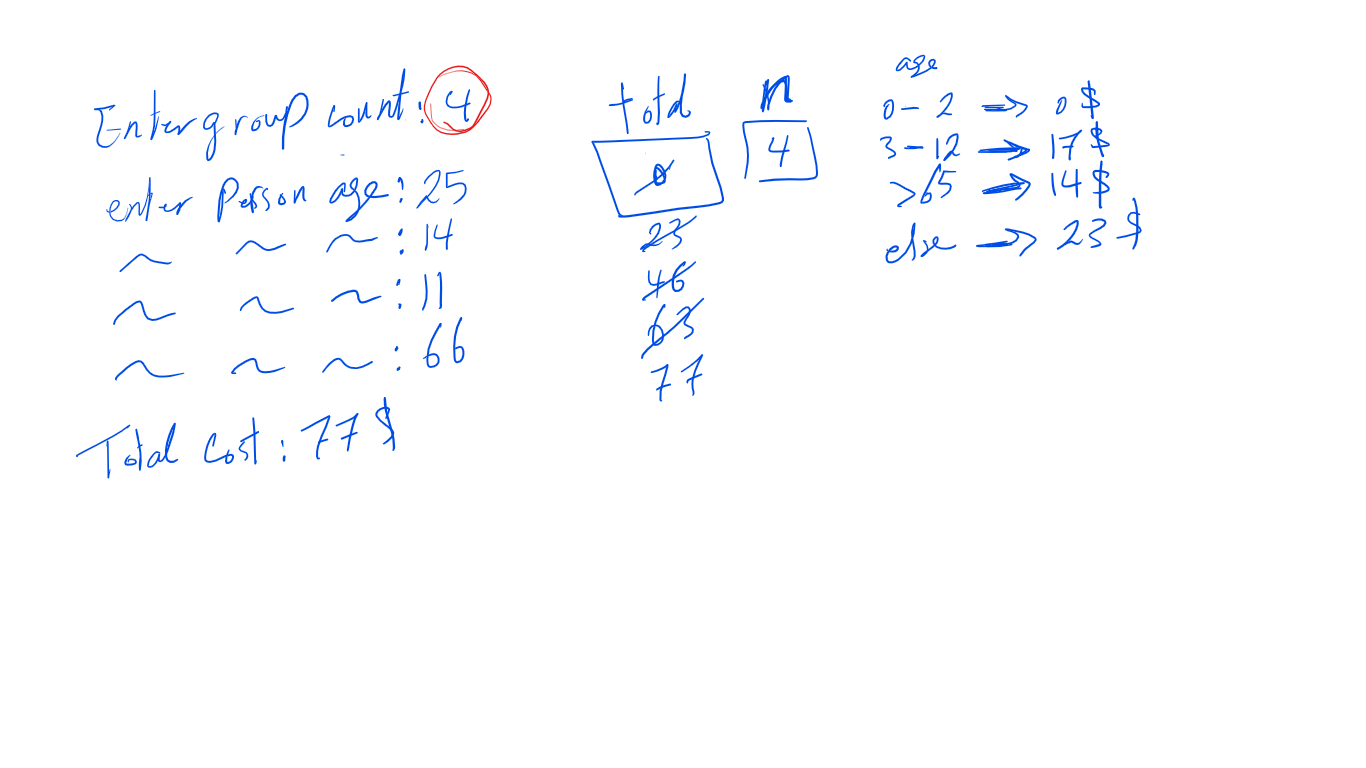 Enter group count: 4
enter Person age: 25
~ ~ ~ : 14
~ ~ ~ : 11
~ ~ ~ : 66
Total Cost: 77$
total
0
23
46
63
77
n
4
age
0 - 2 => 0$
3 - 12 → 17$
>65 → 14$
else → 23$